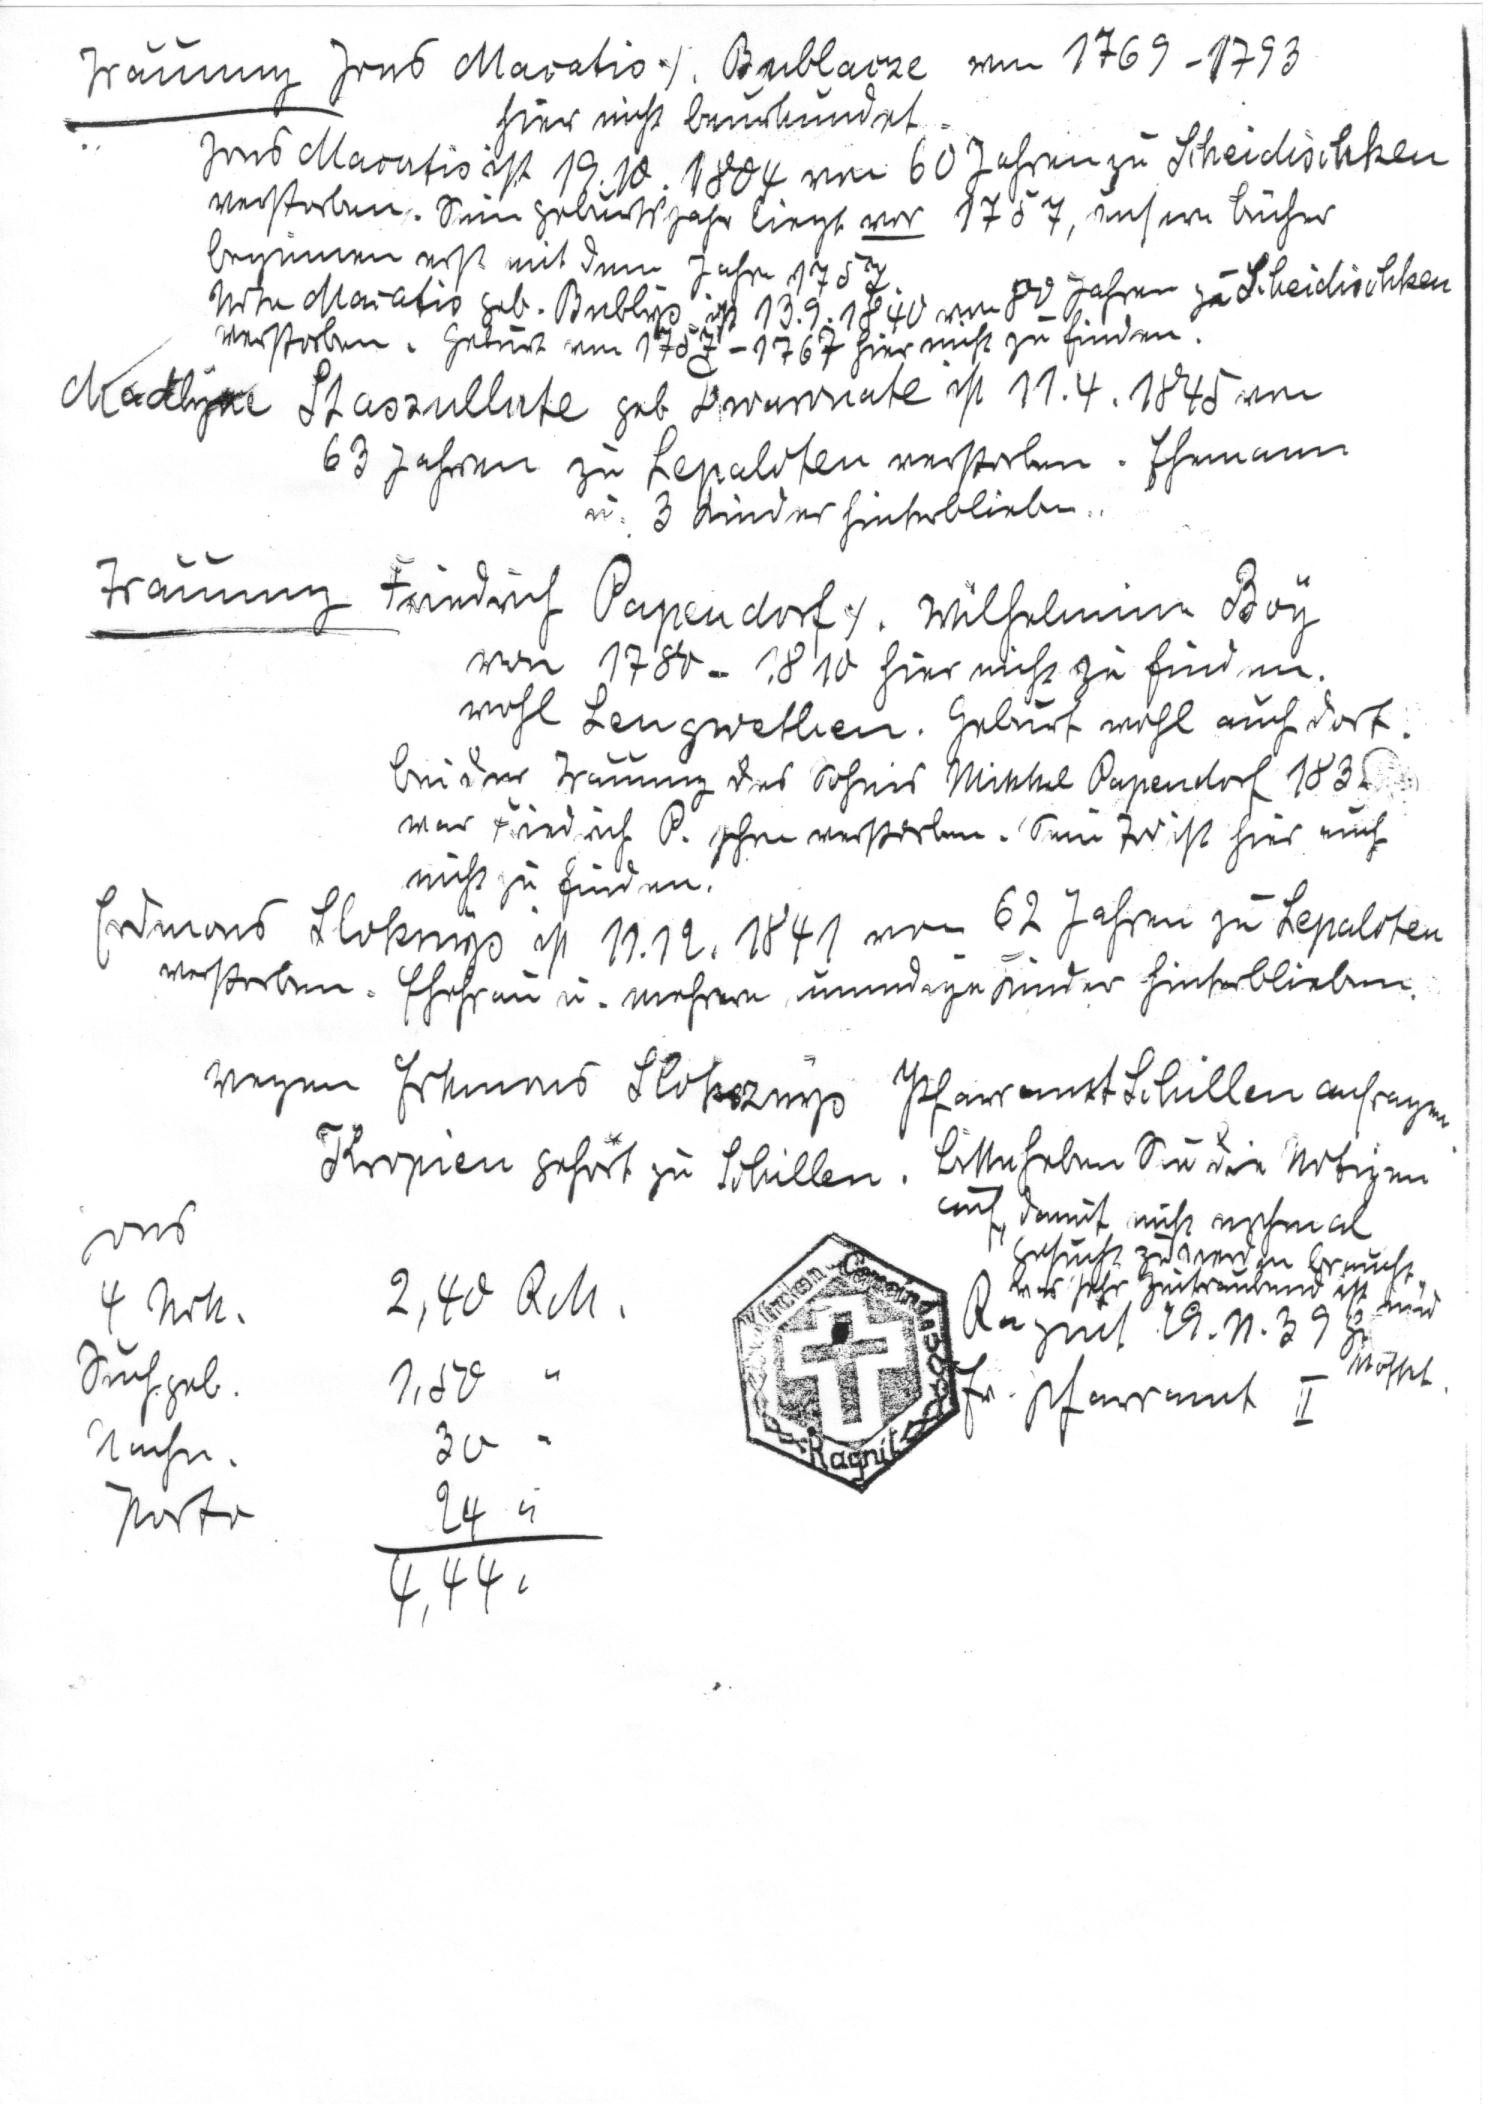 Trauung Jons Maratis ./. Bublacze von 1769-1793
hier nicht beurkundet
Jons Maratis ist 19.10.1804 von 60 Jahren zu Scheidischken
verstorben. Sein Geburtsjahr liegt vor 1757, unsere Bücher
beginnen erst mit dem Jahre 1757.
Urte Maratis geb. Bublys ist 13.9.1840 von 80 Jahren zu Scheidischken
verstorben. Geburt von 1757-1767 hier nicht zu finden.
Madlyne Staszullate geb ist 11.4.1845 von
63 Jahren zu Lepaloten verstorben. Ehemann
u. 3 Kinder hinterblieben.
Trauung Friedrich Papendorf ./. Wilhelmine Böÿ
von 1780-1810 hier nicht zu finden.
wohl Lengwethen. Geburt wohl auch dort.
bei der Trauung des Sohnes Mikkel Papendorf 183
war Friedrich P. schon verstorben. Sein Tod ist hier auch
nicht zu finden.
Erdmons Sloknys ist 11.12.1841 von 62 Jahren zu Lepaloten
verstorben. Ehefrau u. mehrere unmündige Kinder hinterblieben.
wegen Erdmons Sloksznys Pfarramt Schillen anfragen.
Kropien gehört zu Schillen. Bitte heben Sie die Notizen
auf, damit nicht nochmal
gesucht zu werden braucht,
was sehr zeitraubend ist und
Ragnit 29.11.39
Ev. Pfarramt II
4 Urk. 2,40 RM.
Suchgeb. 1,50 "
Nachn. 30 "
Porto 24 "
4,44 "
Kirchen-Gemeinde
Ragnit